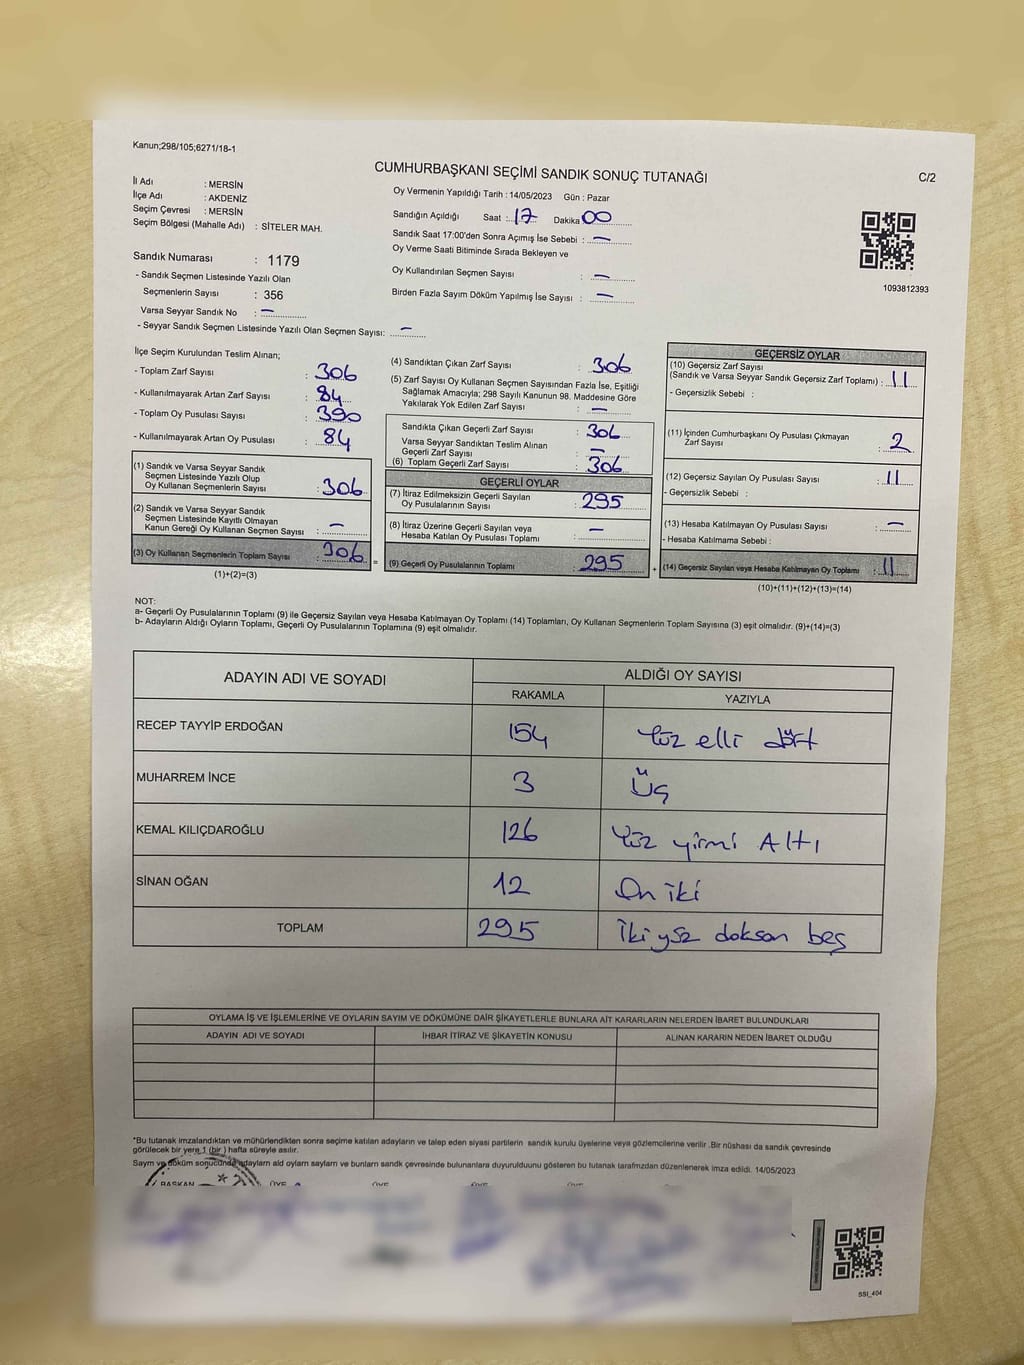 Kanun;298/105;6271/18-1
CUMHURBAŞKANI SEÇİMİ SANDIK SONUÇ TUTANAĞI
C/2
İl Adı : MERSİN
İlçe Adı : AKDENİZ
Seçim Çevresi : MERSİN
Seçim Bölgesi (Mahalle Adı) : SİTELER MAH.
Sandık Numarası : 1179
- Sandık Seçmen Listesinde Yazılı Olan
Seçmenlerin Sayısı : 356
Varsa Seyyar Sandık No : —
- Seyyar Sandık Seçmen Listesinde Yazılı Olan Seçmen Sayısı: —
Oy Vermenin Yapıldığı Tarih : 14/05/2023 Gün : Pazar
Sandığın Açıldığı Saat : 17 Dakika 00
Sandık Saat 17:00'den Sonra Açımış İse Sebebi : —
Oy Verme Saati Bitiminde Sırada Bekleyen ve
Oy Kullandırılan Seçmen Sayısı : —
Birden Fazla Sayım Döküm Yapılmış İse Sayısı : —
1093812393
İlçe Seçim Kurulundan Teslim Alınan;
- Toplam Zarf Sayısı : 306
- Kullanılmayarak Artan Zarf Sayısı : 84
- Toplam Oy Pusulası Sayısı : 390
- Kullanılmayarak Artan Oy Pusulası : 84
(1) Sandık ve Varsa Seyyar Sandık
Seçmen Listesinde Yazılı Olup
Oy Kullanan Seçmenlerin Sayısı : 306
(2) Sandık ve Varsa Seyyar Sandık
Seçmen Listesinde Kayıtlı Olmayan
Kanun Gereği Oy Kullanan Seçmen Sayısı : —
(3) Oy Kullanan Seçmenlerin Toplam Sayısı : 306
(1)+(2)=(3)
(4) Sandıktan Çıkan Zarf Sayısı : 306
(5) Zarf Sayısı Oy Kullanan Seçmen Sayısından Fazla İse, Eşitliği
Sağlamak Amacıyla; 298 Sayılı Kanunun 98. Maddesine Göre
Yakılarak Yok Edilen Zarf Sayısı : —
Sandıkta Çıkan Geçerli Zarf Sayısı : 306
Varsa Seyyar Sandıktan Teslim Alınan
Geçerli Zarf Sayısı : —
(6) Toplam Geçerli Zarf Sayısı : 306
GEÇERLİ OYLAR
(7) İtiraz Edilmeksizin Geçerli Sayılan
Oy Pusulalarının Sayısı : 295
(8) İtiraz Üzerine Geçerli Sayılan veya
Hesaba Katılan Oy Pusulası Toplamı : —
= (9) Geçerli Oy Pusulalarının Toplamı : 295
GEÇERSİZ OYLAR
(10) Geçersiz Zarf Sayısı
(Sandık ve Varsa Seyyar Sandık Geçersiz Zarf Toplamı) : 11
- Geçersizlik Sebebi :
(11) İçinden Cumhurbaşkanı Oy Pusulası Çıkmayan
Zarf Sayısı : 2
(12) Geçersiz Sayılan Oy Pusulası Sayısı : 11
- Geçersizlik Sebebi :
(13) Hesaba Katılmayan Oy Pusulası Sayısı : —
- Hesaba Katılmama Sebebi :
+ (14) Geçersiz Sayılan veya Hesaba Katılmayan Oy Toplamı : 11
(10)+(11)+(12)+(13)=(14)
NOT:
a- Geçerli Oy Pusulalarının Toplamı (9) ile Geçersiz Sayılan veya Hesaba Katılmayan Oy Toplamı (14) Toplamları, Oy Kullanan Seçmenlerin Toplam Sayısına (3) eşit olmalıdır. (9)+(14)=(3)
b- Adayların Aldığı Oyların Toplamı, Geçerli Oy Pusulalarının Toplamına (9) eşit olmalıdır.
ADAYIN ADI VE SOYADI ALDIĞI OY SAYISI
RAKAMLA YAZIYLA
RECEP TAYYİP ERDOĞAN 154 Yüz elli dört
MUHARREM İNCE 3 Üç
KEMAL KILIÇDAROĞLU 126 Yüz yirmi Altı
SİNAN OĞAN 12 On iki
TOPLAM 295 İkiyüz doksan beş
OYLAMA İŞ VE İŞLEMLERİNE VE OYLARIN SAYIM VE DÖKÜMÜNE DAİR ŞİKAYETLERLE BUNLARA AİT KARARLARIN NELERDEN İBARET BULUNDUKLARI
ADAYIN ADI VE SOYADI İHBAR İTİRAZ VE ŞİKAYETİN KONUSU ALINAN KARARIN NEDEN İBARET OLDUĞU
*Bu tutanak imzalandıktan ve mühürlendikten sonra seçime katılan adayların ve talep eden siyasi partilerin sandık kurulu üyelerine veya gözlemcilerine verilir .Bir nüshası da sandık çevresinde
görülecek bir yere 1 (bir ) hafta süreyle asılır.
Sayım ve döküm sonucunda adayların ald oyların sayların ve bunların sandk çevresinde bulunanlara duyurulduunu gösteren bu tutanak tarafımzdan düzenlenerek imza edildi. 14/05/2023
BAŞKAN ÜYE ÜYE ÜYE ÜYE
SSI_404